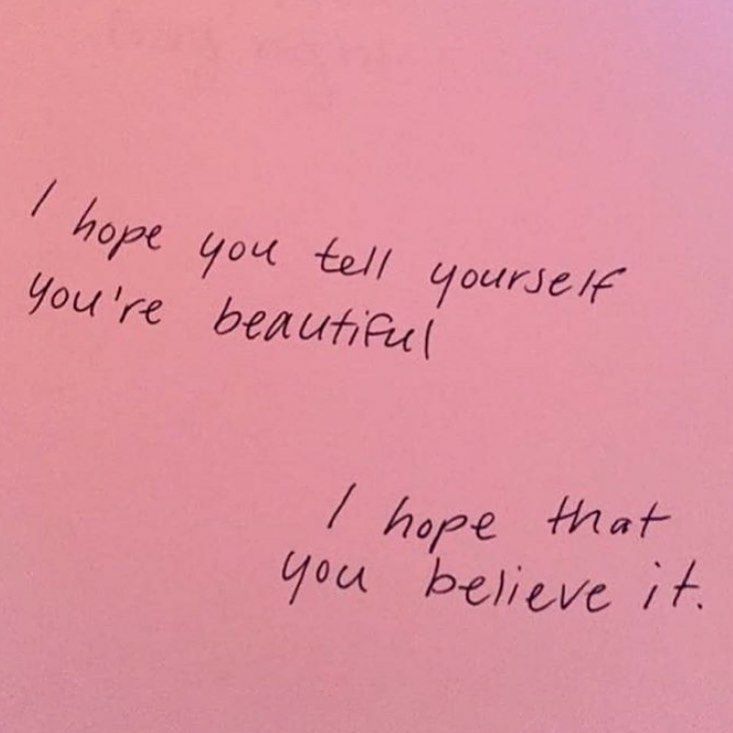 I hope you tell yourself
you're beautiful
I hope that
you believe it.